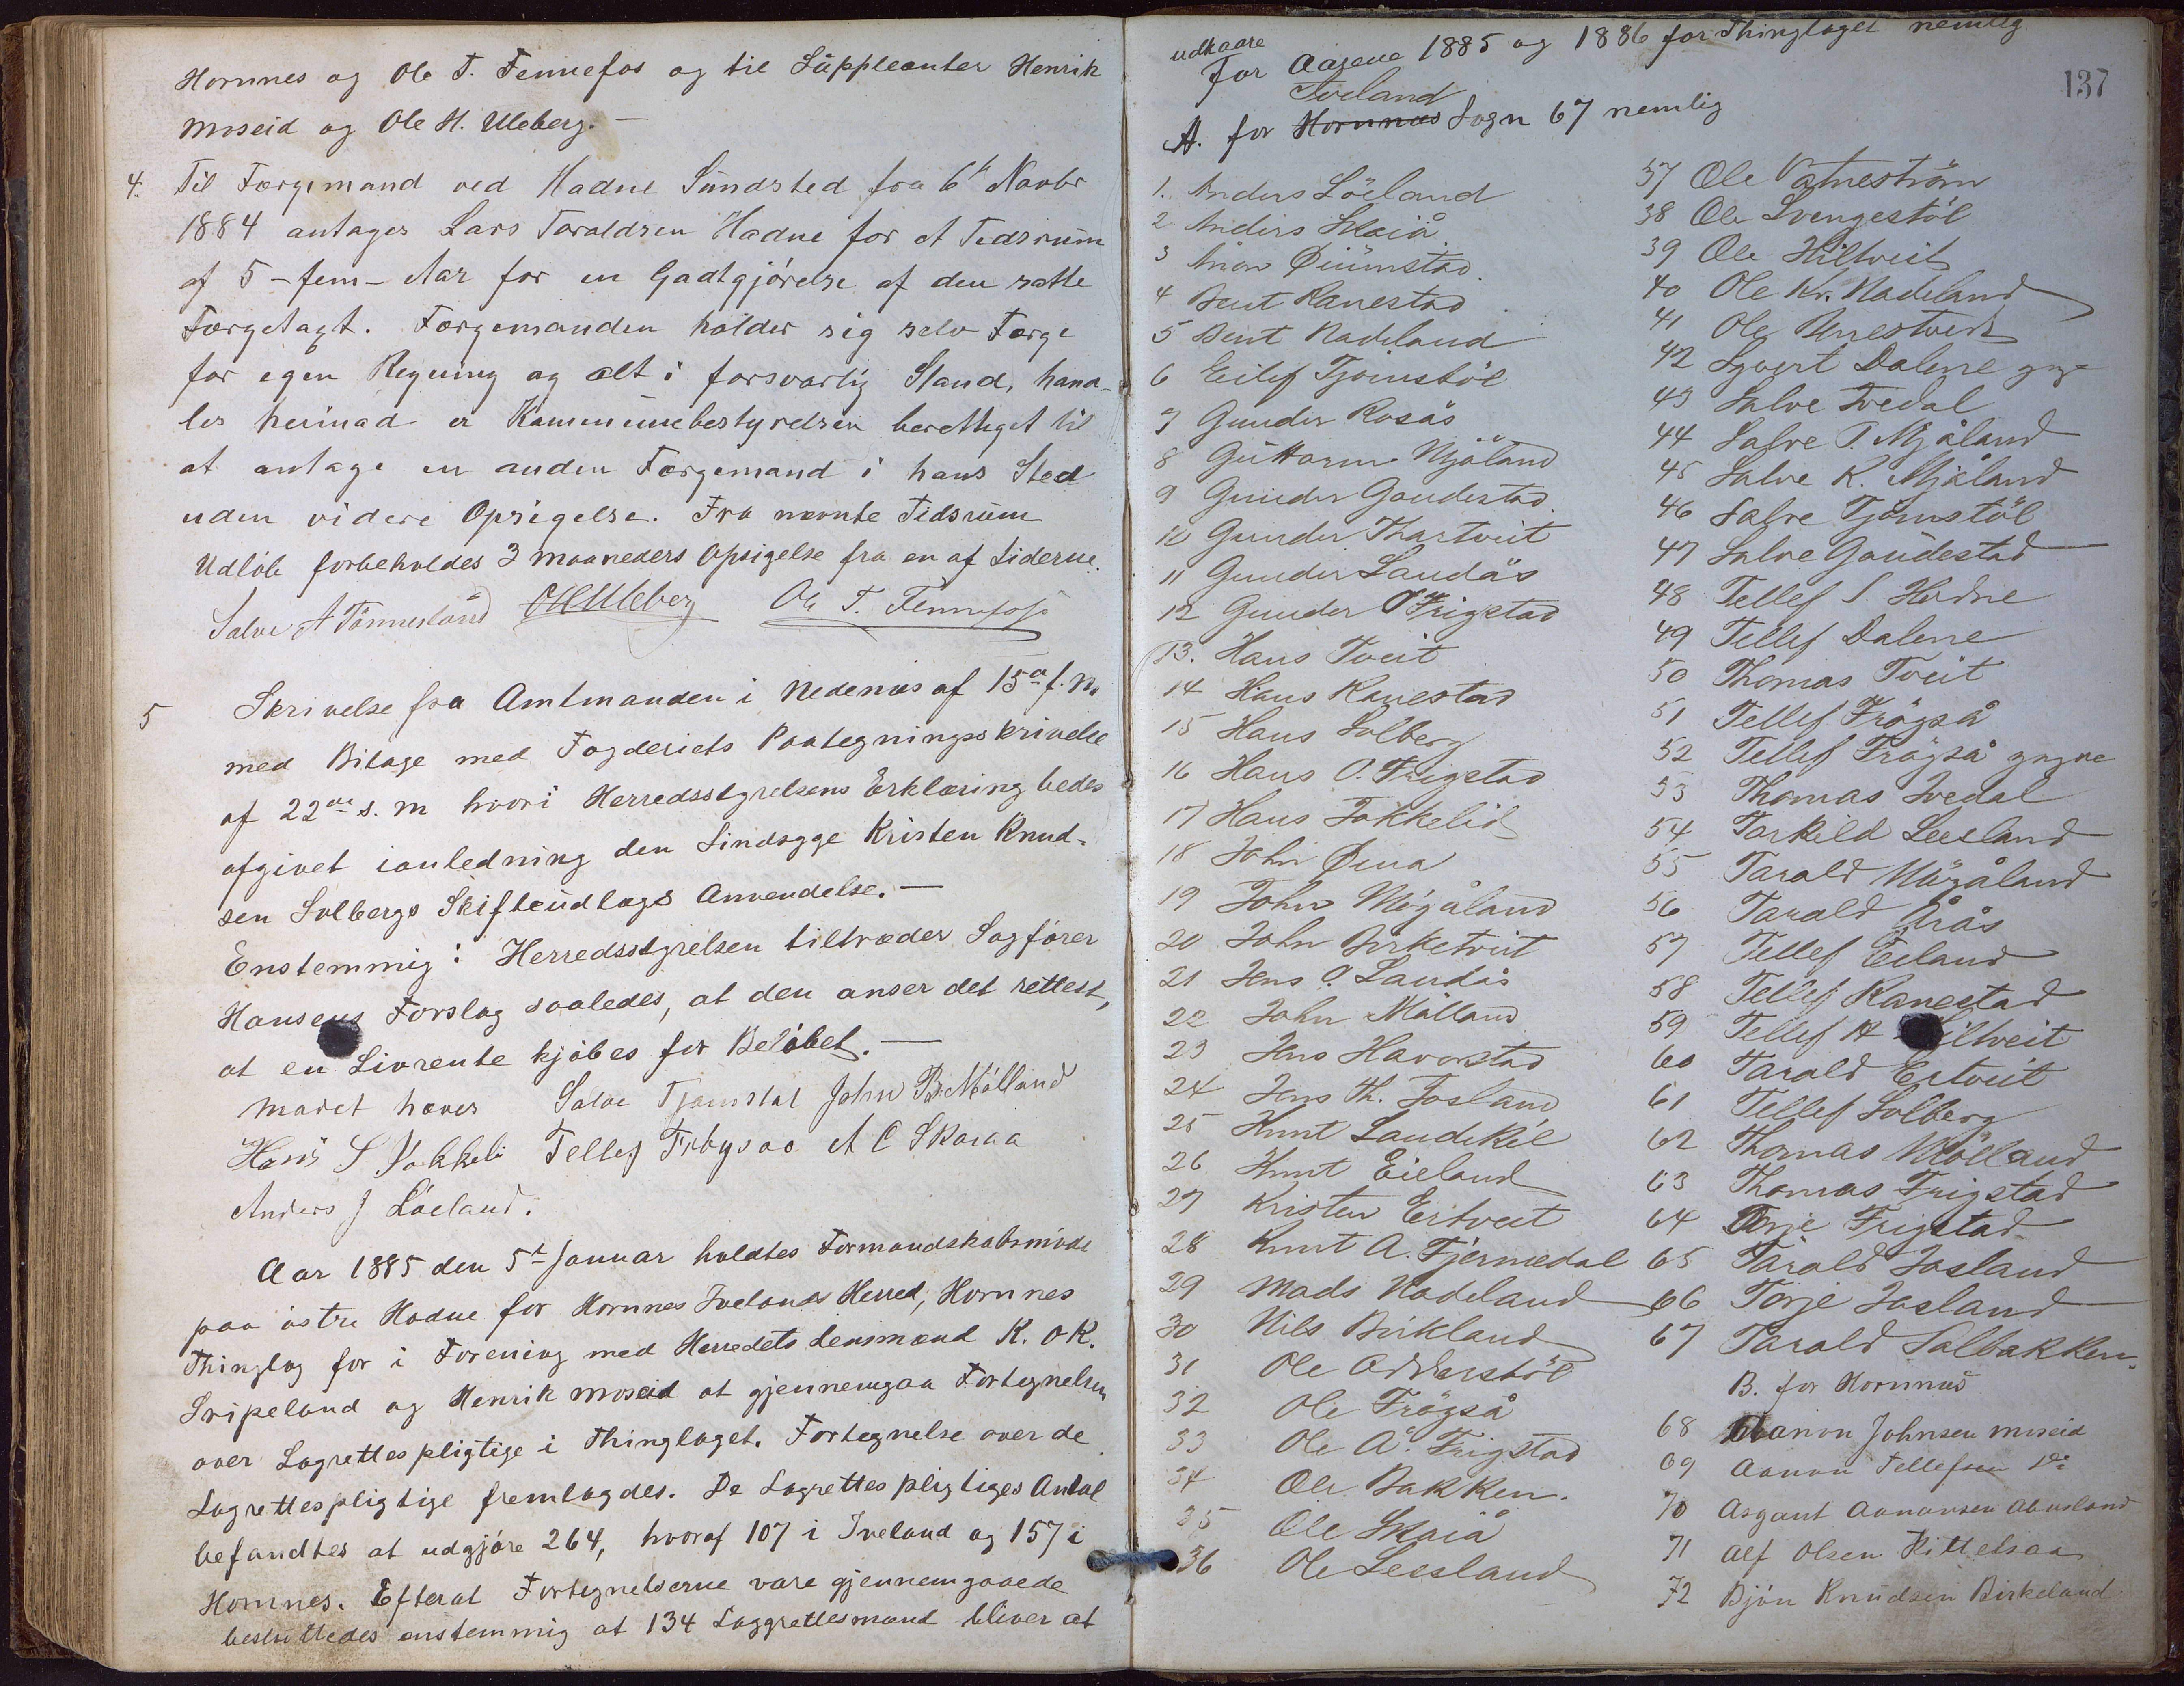 Hornnes og Ole T. Fennefos og til Suppleanter Henrik
Moseid og Ole H. Uleberg. —
4. Til Færgemand ved Hadne Sundsted fra 6te Novbr
1884 antages Lars Taraldsen Hadne for et Tidsrum
af 5 - fem - Aar for en Godtgjörelse af den satte
Færgetagt. Færgemanden holder sig selv Færge
for egen Regning og alt i forsvarlig Stand, hand-
les herimod er Kommunebestyrelsen berettiget til
at antage en anden Færgemand i hans Sted
uden videre Opsigelse. Fra nævnte Tidsrum
Udløb forbeholdes 3 Maaneders Opsigelse fra en af Siderne.
Salve A Tønnesland OHUleberg Ole T. Fennefoss
5 Skrivelse fra Amtmanden i Nedenæs af 15de f. M.
med Bilage med Fogderiets Paategningsskrivelse
af 22de s. m hvori Herredsstyrelsens Erklæring bedes
afgivet ianledning den Sindsyge Kristen Knud-
sen Solbergs Skifteudlægs Anvendelse. —
Enstemmig: Herredsstyrelsen tiltræder Sagförer
Hansens Forslag saaledes, at den anser det rettest,
at en Livrente kjöbes for Belöbet. —
Mødet hæves Salve Tjomstøl John B Mölland
Hans S Fokkeli Tellef Frøysaa A C Skaiaa
Anders J Löeland.
Aar 1885 den 5te Januar holdtes Formandskabsmöde
paa östre Hodne for Hornnes Ivelands Herred, Hornnes
Thinglag for i Forening med Herredets Lensmænd K. O K.
Gripeland og Henrik Moseid at gjennemgaa Fortegnelsen
over Lagrettespligtige i Thinglaget. Fortegnelse over de
Lagrettespligtige fremlagdes. De Lagrettespligtiges Antal
befandtes at udgjöre 264, hvoraf 107 i Iveland og 157 i
Hornnes. Efterat Fortegnelserne vare gjennemgaaede
besluttedes enstemmig at 134 Laggrettesmænd bliver at
137
udkaare
For Aarene 1885 og 1886 for Thinglaget nemlig
Iveland
A. for Hornnæs Sogn 67 nemlig
1. Anders Löeland
2 Anders Skaiå
3 Ånon Øiumstad
4 Bent Ranestad
5 Bent Nadeland
6 Eilef Tjömstöl
7 Gunder Rosås
8 Guttorm Mjåland
9 Gunder Gaudestad.
10 Gunder Thortveit
11 Gunder Landås
12 Gunder O Frigstad
13. Hans Tveit
14 Hans Ranestad
15 Hans Solberg
16 Hans O. Frigstad
17 Hans Fokkelid
18 John Øina
19 John Mögåland
20 John Birketveit
21 Jens O. Landås
22 John Mölland
23 Jens Håvorstad
24 Jens Th. Josland
25 Knut Landekil
26 Knut Eieland
27 Kristen Eitveit
28 Knut A. Fjermedal
29 Mads Nadeland
30 Nils Birkland
31 Ole Odderstöl
32 Ole Frögså
33 Ole Å. Frigstad
34 Ole Bakken.
35 Ole Skaiå
36 Ole Leesland
37 Ole Vatneström
38 Ole Svengestöl
39 Ole Hiltveit
40 Ole Kr. Nadeland
41 Ole Unestveit
42 Syvert Dalene yngre
43 Salve Ivedal
44 Salve T. Mjåland
45 Salve K. Mjåland
46 Salve Tjömstöl
47 Salve Gaudestad
48 Tellef S. Hodne
49 Tellef Dalene
50 Thomas Tveit
51 Tellef Frögså
52 Tellef Frögså yngre
53 Thomas Ivedal
54 Torkild Leesland
55 Tarald Mögåland
56 Tarald Årås
57 Tellef Eiland
58 Tellef Ranestad
59 Tellef A Hiltveit
60 Tarald Eitveit
61 Tellef Solberg
62 Thomas Mölland
63 Thomas Frigstad
64 Terje Frigstad
65 Tarald Josland
66 Torje Josland
67 Tarald Solbakken.
B. for Hornnæs
68 Aanon Johnsen Moseid
69 Aanon Tellefsen do
70 Asgaut Aanonsen Abusland
71 Alf Olsen Kittelsaa
72 Björn Knudsen Birkeland